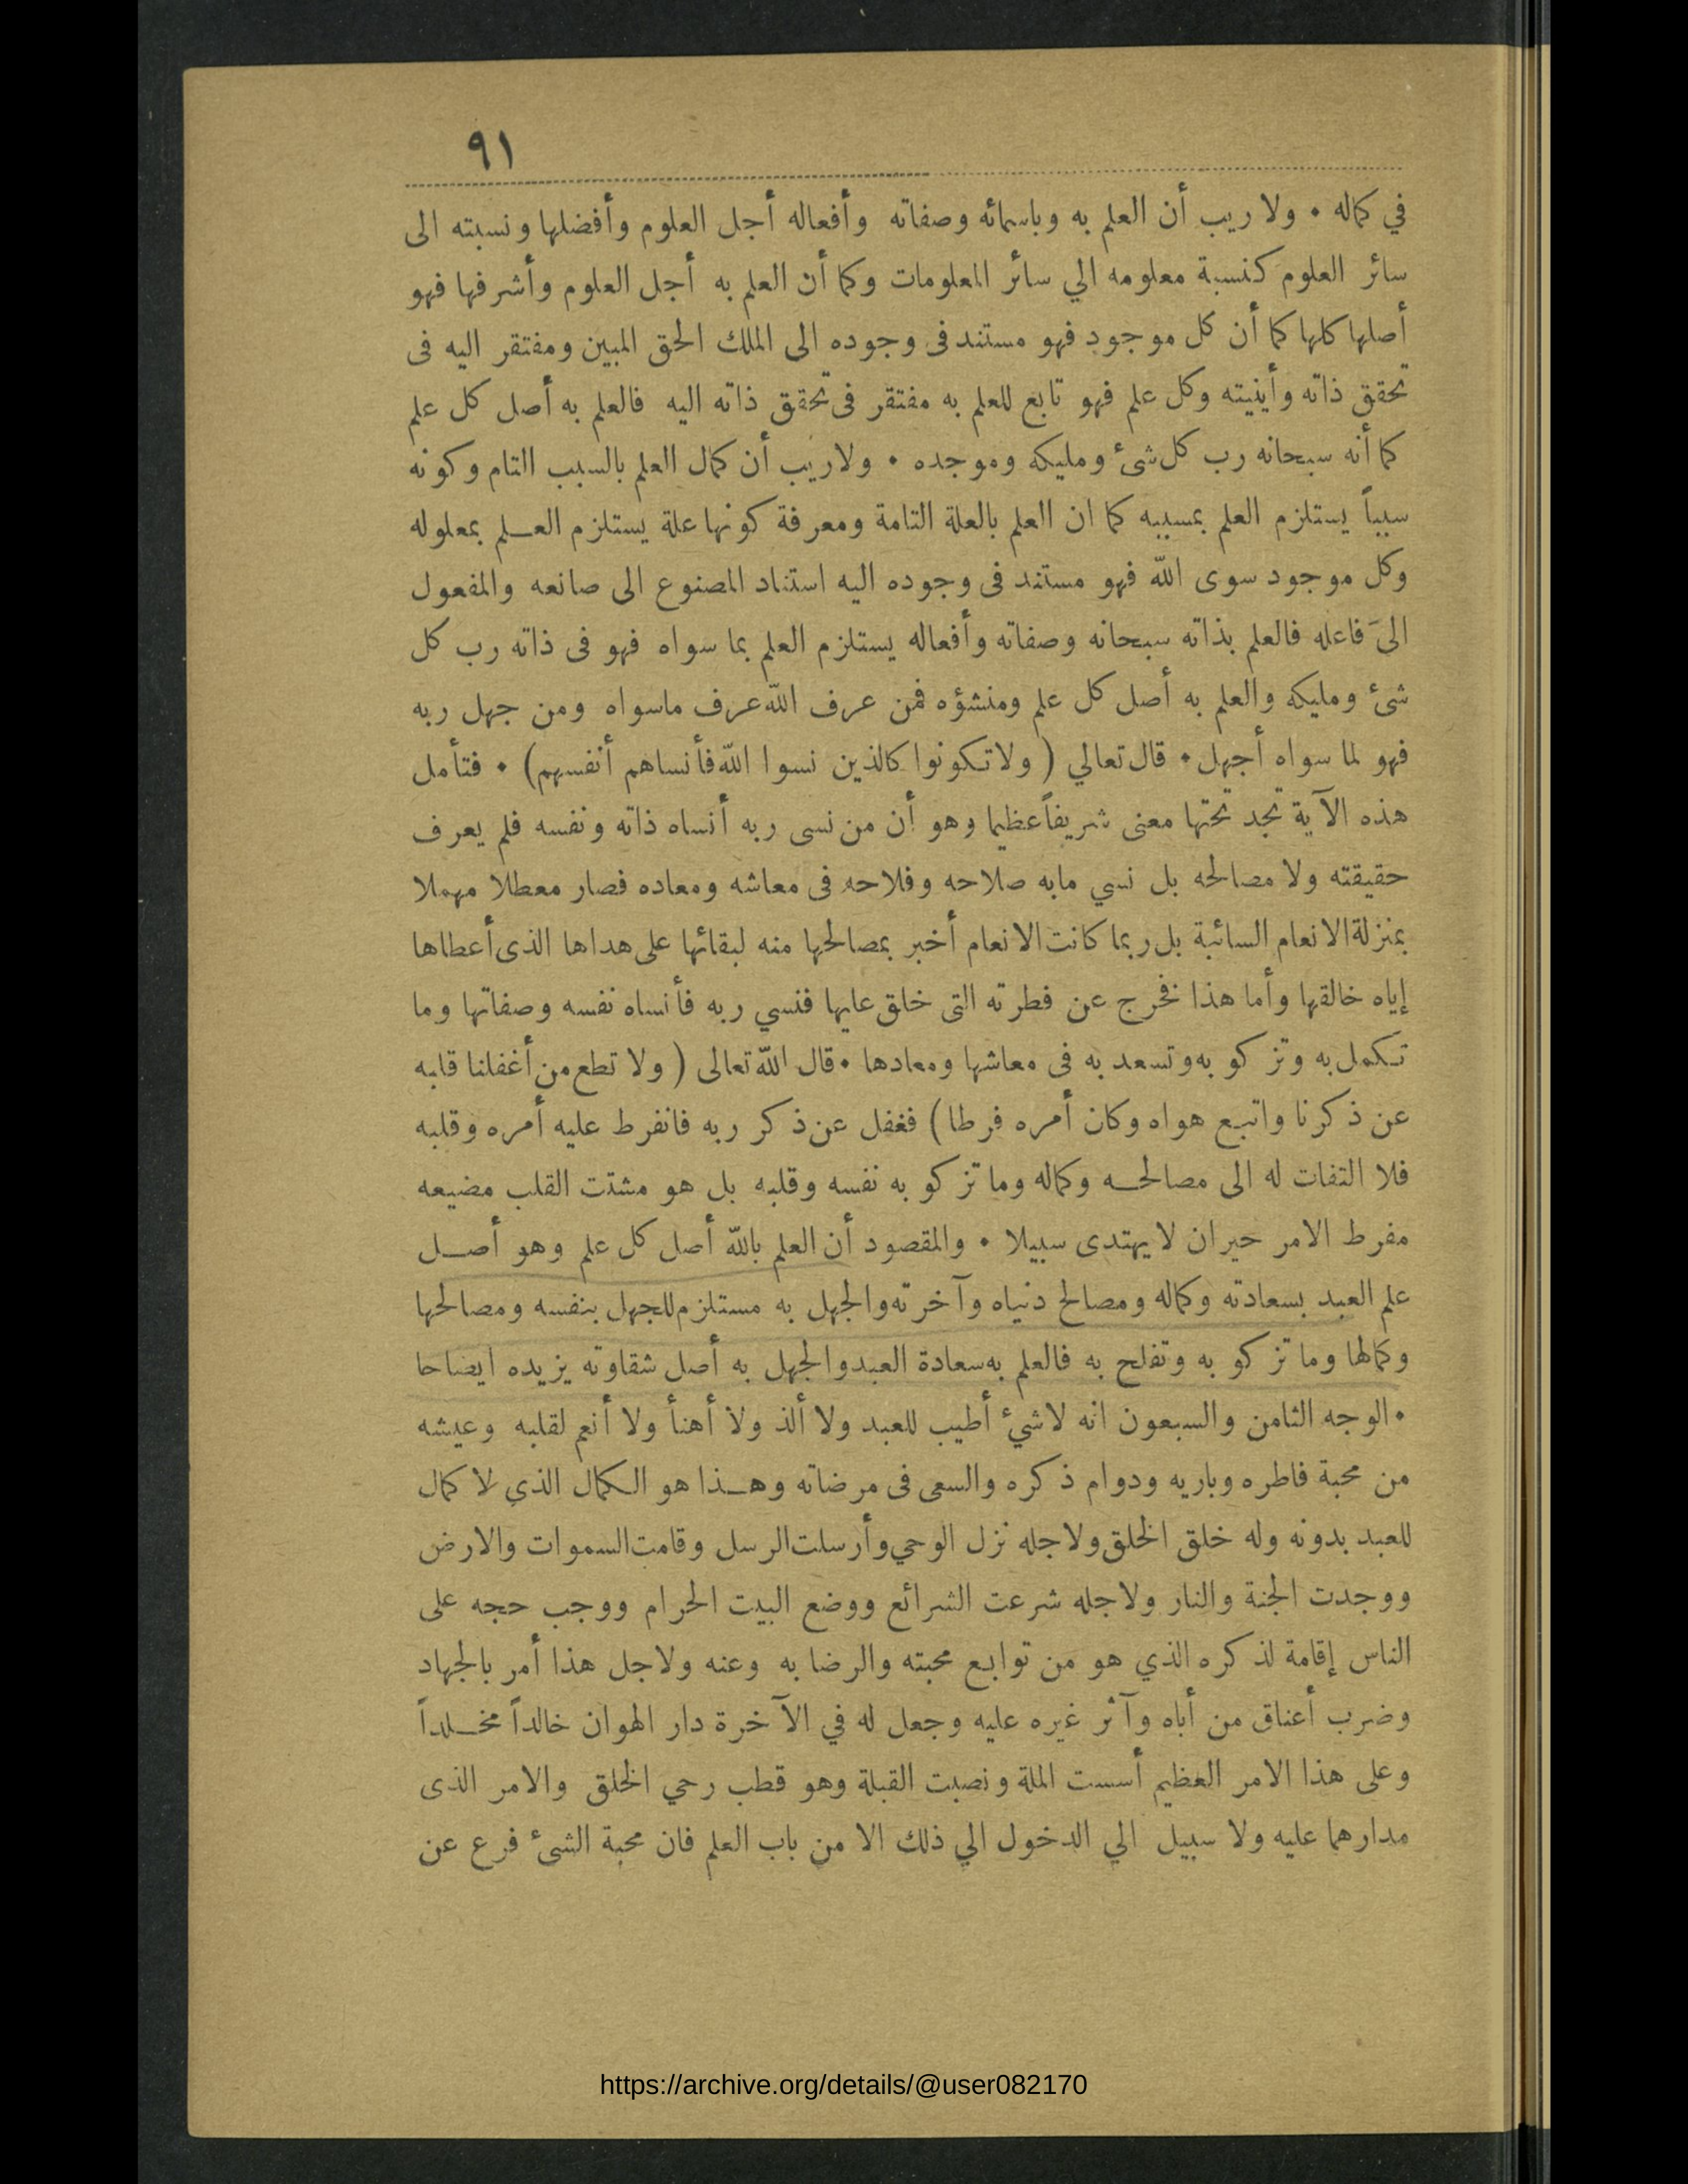 ٩١
في كماله • ولا ريب أن العلم به وباسمائه وصفاته وأفعاله أجل العلوم وأفضلها ونسبته الى
سائر العلوم كنسبة معلومه الي سائر المعلومات وكما أن العلم به أجل العلوم وأشرفها فهو
أصلها كلها كما أن كل موجود فهو مستند فى وجوده الى الملك الحق المبين ومفتقر اليه فى
تحقق ذاته وأينيته وكل علم فهو تابع للعلم به مفتقر فى تحقق ذاته اليه فالعلم به أصل كل علم
كما أنه سبحانه رب كل شئ ومليكه وموجده • ولا ريب أن كمال العلم بالسبب التام وكونه
سبباً يستلزم العلم بمسببه كما ان العلم بالعلة التامة ومعرفة كونها علة يستلزم العـلم بمعلوله
وكل موجود سوى الله فهو مستند فى وجوده اليه استناد المصنوع الى صانعه والمفعول
الى فاعله فالعلم بذاته سبحانه وصفاته وأفعاله يستلزم العلم بما سواه فهو فى ذاته رب كل
شئ ومليكه والعلم به أصل كل علم ومنشؤه فمن عرف الله عرف ماسواه ومن جهل ربه
فهو لما سواه أجهل • قال تعالي ( ولا تكونوا كالذين نسوا الله فأنساهم أنفسهم) • فتأمل
هذه الآية تجد تحتها معنى شريفاً عظيما وهو أن من نسى ربه أنساه ذاته ونفسه فلم يعرف
حقيقته ولا مصالحه بل نسي مابه صلاحه وفلاحه فى معاشه ومعاده فصار معطلا مهملا
بمنزلة الانعام السائبة بل ربما كانت الانعام أخبر بمصالحها منه لبقائها على هداها الذى أعطاها
إياه خالقها وأما هذا نخرج عن فطرته التى خلق عليها فنسي ربه فأنساه نفسه وصفاتها وما
تكمل به وتزكو به وتسعد به فى معاشها ومعادها • قال الله تعالى ( ولا تطع من أغفلنا قلبه
عن ذكرنا واتبع هواه وكان أمره فرطا) فغفل عن ذكر ربه فانفرط عليه أمره وقلبه
فلا التفات له الى مصالحـه وكماله وما تزكو به نفسه وقلبه بل هو مشتت القلب مضيعه
مفرط الامر حيران لا يهتدى سبيلا • والمقصود أن العلم بالله أصل كل علم وهو أصـل
علم العبد بسعادته وكماله ومصالح دنياه وآخرته والجهل به مستلزم للجهل بنفسه ومصالحها
وكمالها وما تزكو به وتفلح به فالعلم به سعادة العبد والجهل به أصل شقاوته يزيده ايضاحا
• الوجه الثامن والسبعون انه لاشيء أطيب للعبد ولا ألذ ولا أهنأ ولا أنعم لقلبه وعيشه
من محبة فاطره وباريه ودوام ذكره والسعى فى مرضاته وهـذا هو الكمال الذي لا كمال
للعبد بدونه وله خلق الخلق ولاجله نزل الوحي وأرسلت الرسل وقامت السموات والارض
ووجدت الجنة والنار ولاجله شرعت الشرائع ووضع البيت الحرام ووجب حجه على
الناس إقامة لذكره الذي هو من توابع محبته والرضا به وعنه ولاجل هذا أمر بالجهاد
وضرب أعناق من أباه وآثر غيره عليه وجعل له في الآخرة دار الهوان خالداً مخـلداً
وعلى هذا الامر العظيم أسست الملة ونصبت القبلة وهو قطب رحي الخلق والامر الذى
مدارهما عليه ولا سبيل الي الدخول الي ذلك الا من باب العلم فان محبة الشئ فرع عن
https://archive.org/details/@user082170